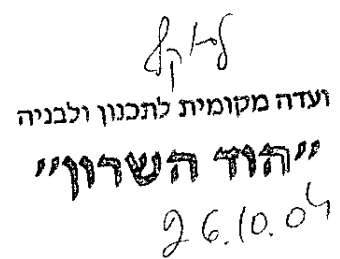 ועדה מקומית לתכנון ולבניה
"הוד השרון"
26.10.04